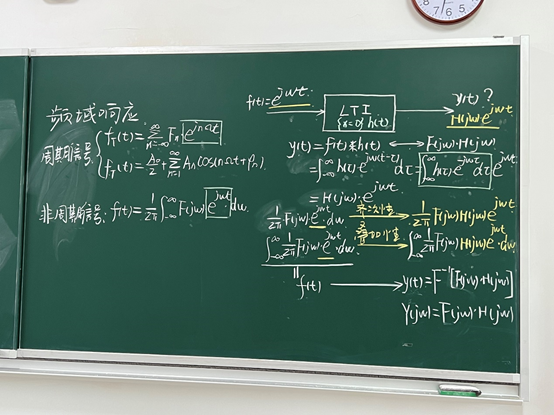 频域响应
周期信号 { f_T(t)=∑_{n=-∞}^{∞} F_n e^{jnΩt}
f_T(t)=A₀/2+∑_{n=1}^{∞} A_n cos(nΩt+φ_n)
非周期信号: f(t)=1/2π ∫_{-∞}^{∞} F(jω) e^{jωt} dω
f(t)=e^{jωt} → LTI → y(t) ?
{x=0} h(t) H(jω)·e^{jωt}
y(t)=f(t)*h(t) ↔ F(jω)·H(jω)
=∫_{-∞}^{∞} h(τ) e^{jω(t-τ)} dτ=∫_{-∞}^{∞} h(τ) e^{-jωτ} dτ e^{jωt}
=H(jω)·e^{jωt}
1/2π F(jω)·e^{jωt}·dω 齐次性 → 1/2π F(jω)H(jω)e^{jωt}
∫_{-∞}^{∞} 1/2π F(jω)·e^{jωt}·dω 叠加性 → ∫_{-∞}^{∞} 1/2π F(jω)H(jω)e^{jωt}·dω
f(t) → y(t)=F^{-1}[F(jω)·H(jω)]
Y(jω)=F(jω)·H(jω)